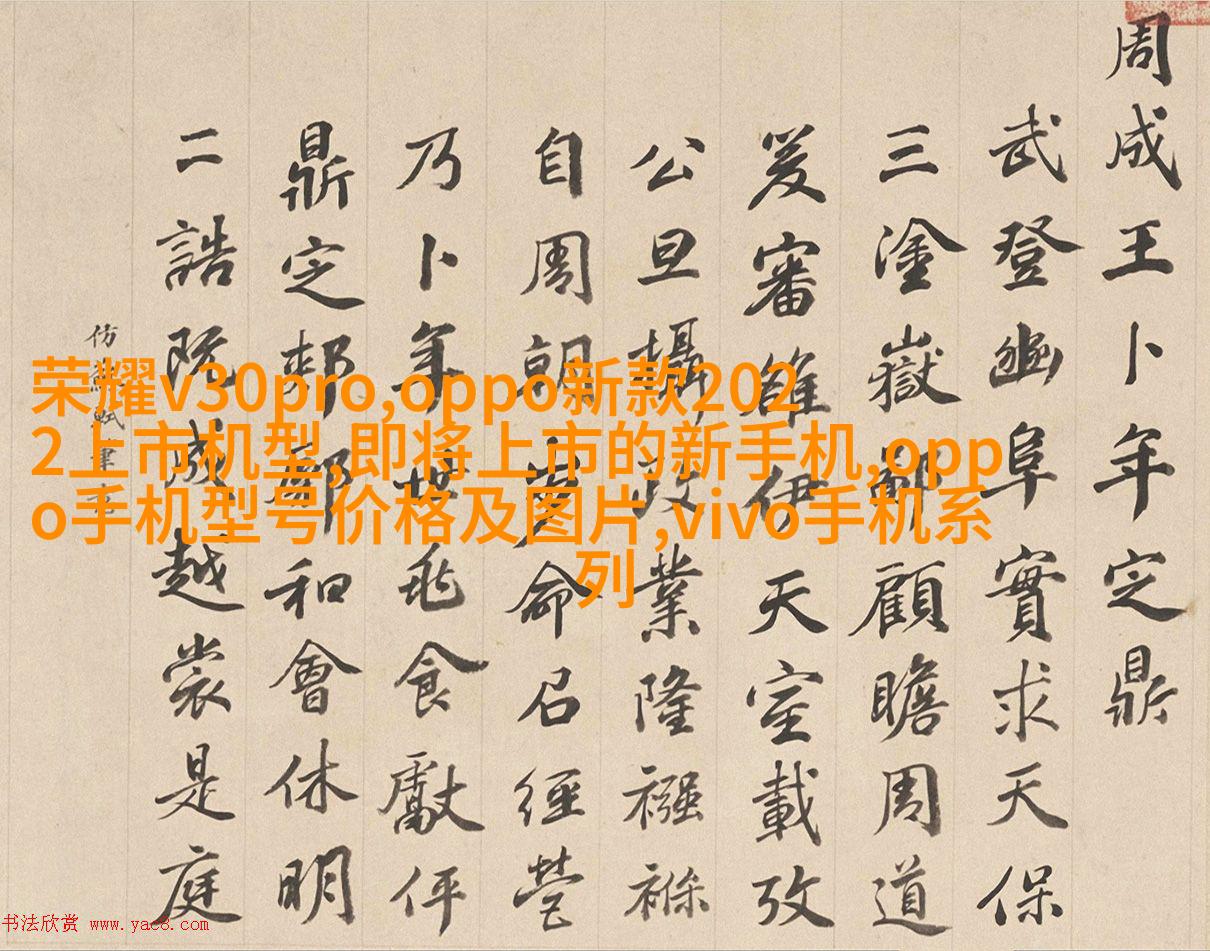 周成王卜年定鼎
武登幽阜實求天保
三塗嶽鄙顧瞻周道
爰審雒伊天室載攷
公旦攝政業隆襁褓
自周朝步命召經營
乃卜年世兆食獻伻
鼎定郟鄏和會休明
二誥既成越裳是庭
仿蘇軾筆意
荣耀v30pro,oppo新款202
2上市机型,即将上市的新手机,opp
o手机型号价格及图片,vivo手机系
列
书法欣赏 www.yac8.com